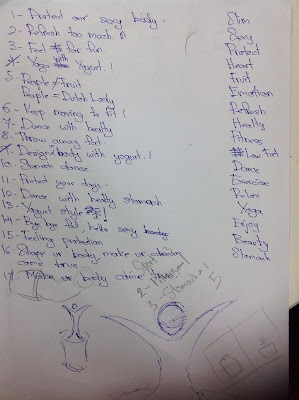 1- Protect our sexy body.
2- Refresh too much.
3- Feel for fun
4- Yoga with Yogurt.!
5- People ≠ Fruit
People = Dutch Lady
6- Keep moving to fit!
7- Dance with healty
8- Throw away fat.
9- Designed body with yogurt.!
10- Stomach dance.
11- Protect your days.
12- Dance with healty stomach
13- Yogurt style !
14- Bye bye fat hello sexy
15- Feeling protection
16- Shape ur body, make ur
come true
17- Make ur body come
Slim
Sexy
Protect
Heart
Fruit
Emotion
Refresh
Healty
Fitness
Low Fat
Dance
Exercise
Relax
Yoga
Enjoy
Beauty
Stomach
2-
3- Stomach!
5